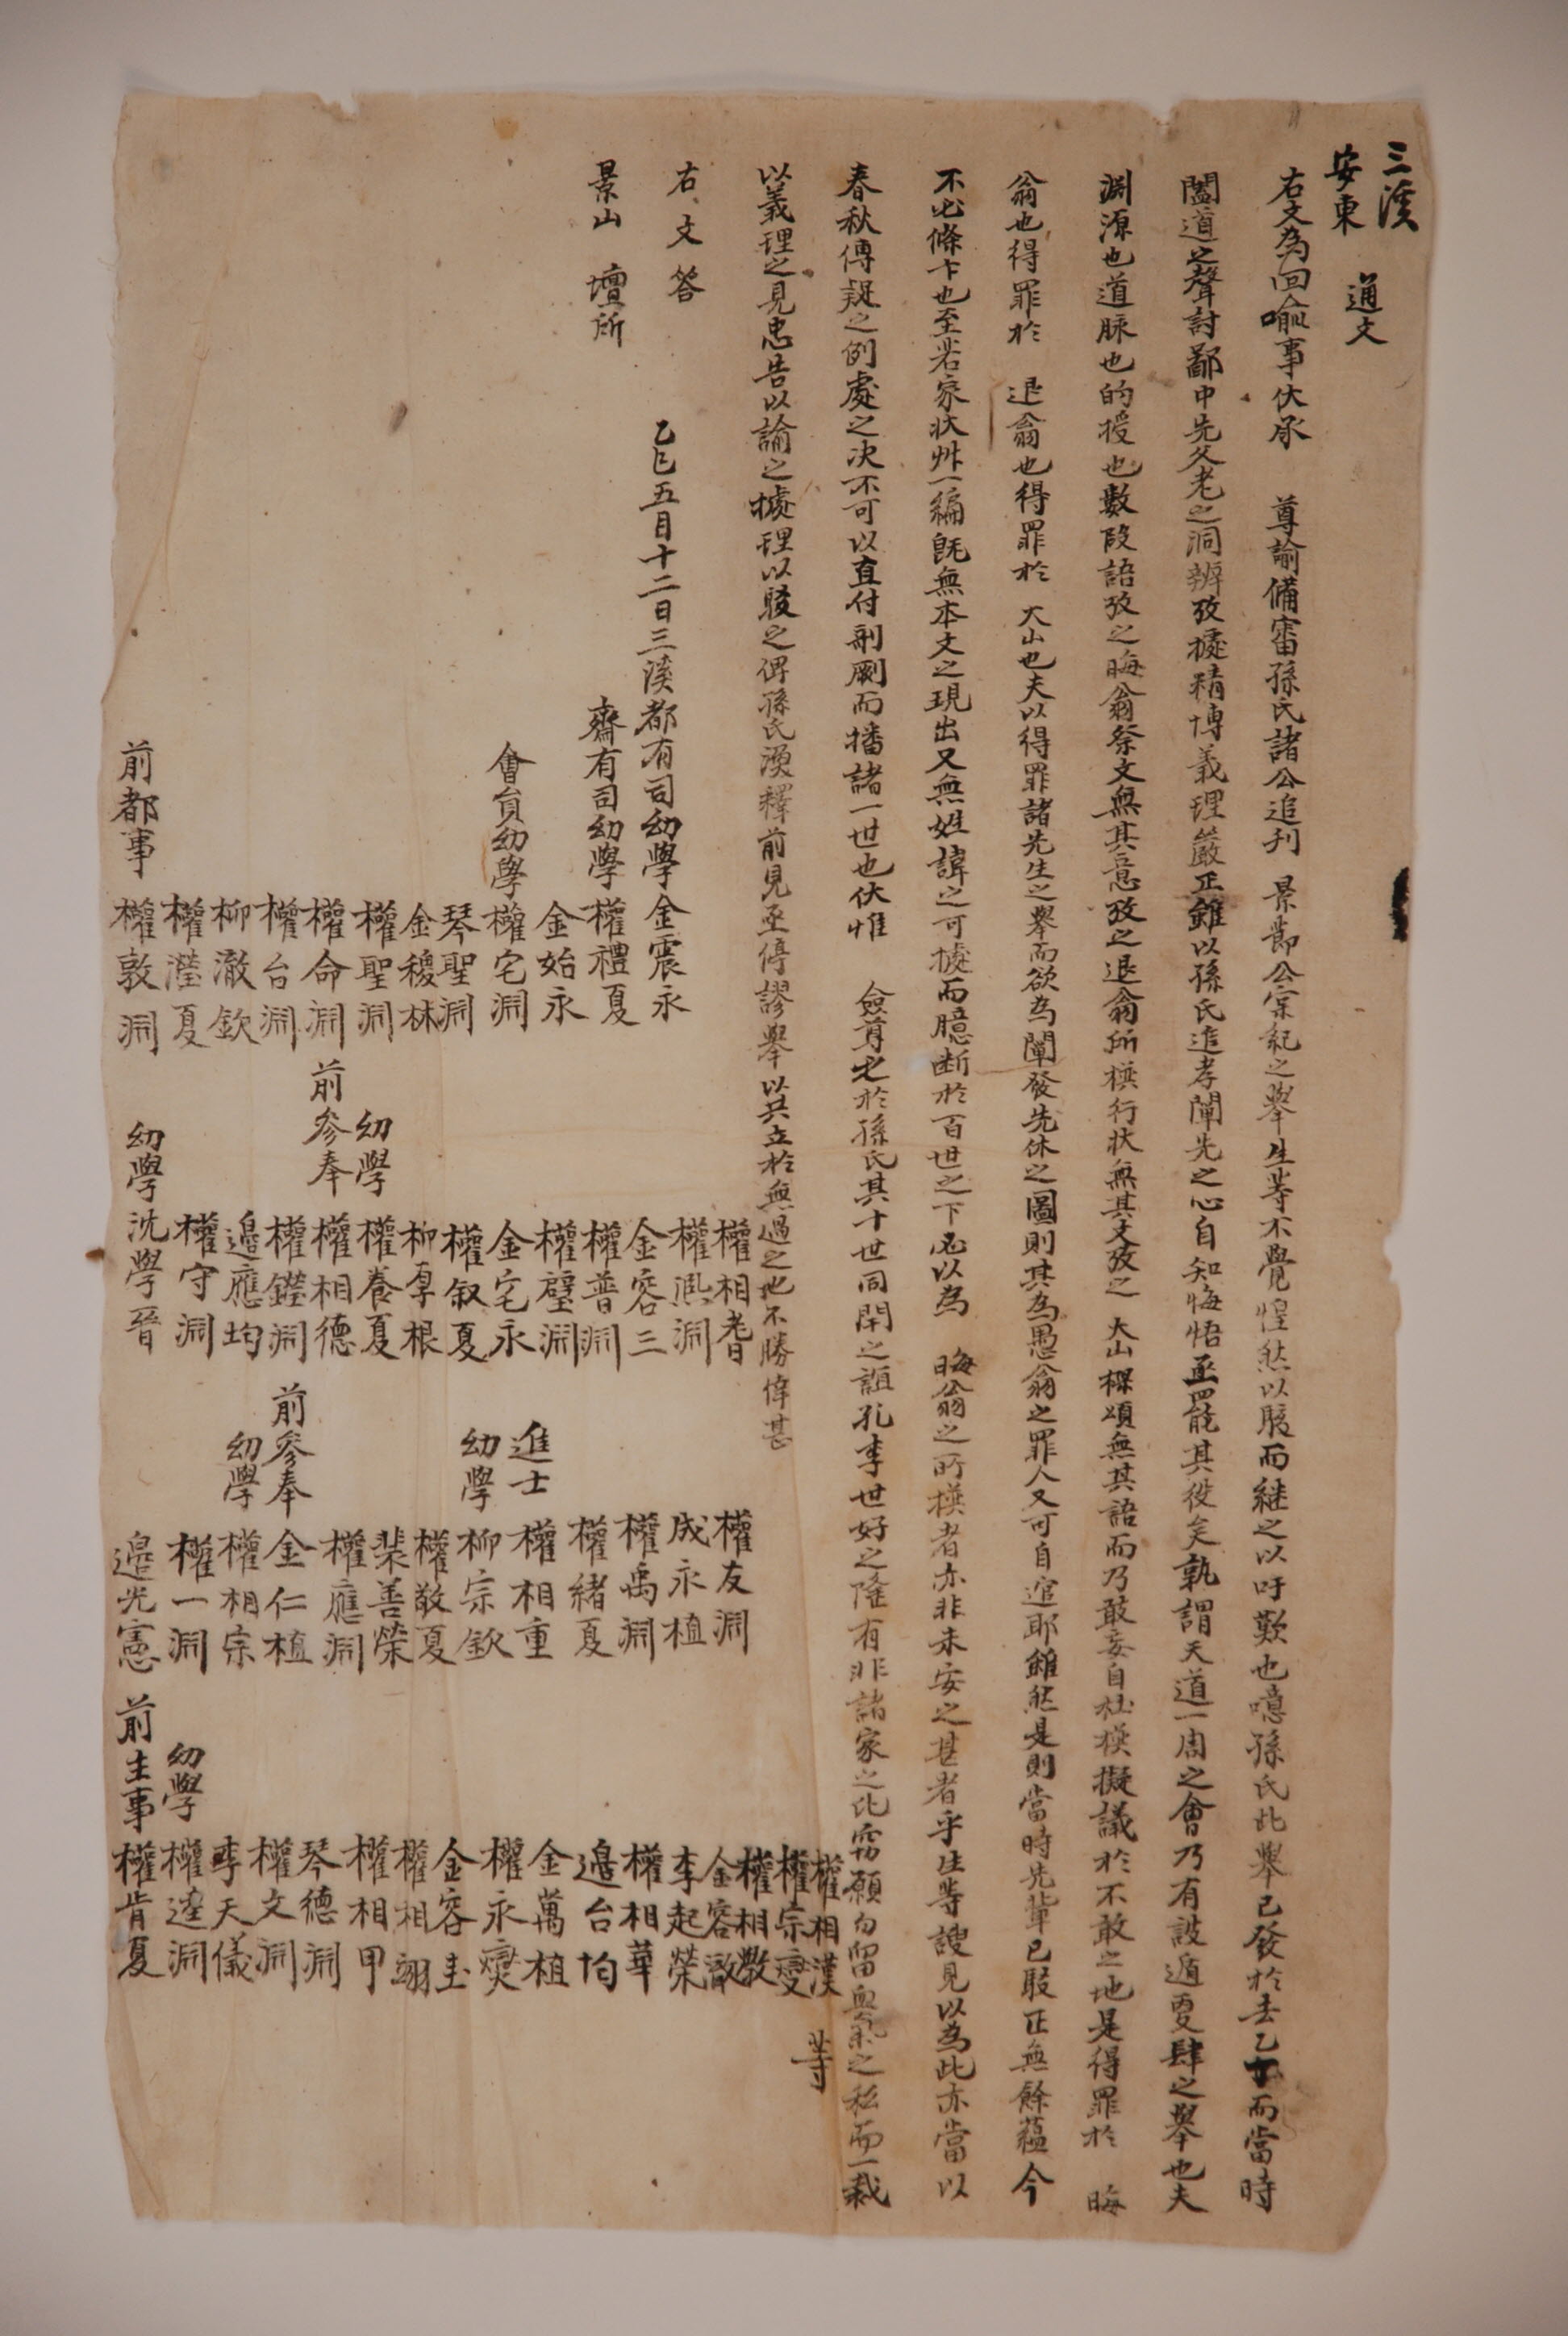 三溪
安東 通文
右文為回喩事伏承 尊諭備審孫氏諸公追刊 景節公宗䂓之擧生等不覺惶然以駭而継之以吁歎也噫孫氏此擧已發於去乙丁而當時
闔道之聲討鄙中先父老之洞辨攷據精博義理嚴正雖以孫氏追孝闡先之心自知悔悟亟罷其役矣孰謂天道一周之會乃有詖遁更肆之擧也夫
淵源也道脉也的授也數段語攷之晦翁祭文無其意攷之退翁所撰行狀無其文攷之 大山稞頌無其語而乃敢妄自杜撰擬議於不敢之地是得罪於 晦
翁也得罪於 退翁也得罪於 大山也夫以得罪諸先生之擧而欲為闡發先休之圖則其為愚翁之罪人又可自逭耶雖然是則當時先輩已駁正無餘蘊今
不必條卞也至若家狀艸一編旣無本文之現出又無姓諱之可據而臆断於百世之下必以為 晦翁之所撰者亦非未安之甚者乎生等謏見以為此亦當以
春秋傳疑之例處之决不可以直付剞劂而播諸一世也伏惟 僉尊之於孫氏其十世同閈之誼孔李世好之隆有非諸家之比窃願勿留無氣之私而一裁
以義理之見忠告以諭之據理以駁之俾孫氏渙釋前見亟停謬擧以共立於無過之地不勝倖甚
右文答
景山 壇所
乙巳五月十二日三溪都有司幼學金震永
齋有司幼學權禮夏
金始永
會員幼學權宅淵
琴聖淵
金稷林
權聖淵
權命淵
權台淵
柳澈欽
權瀅夏
前都事 權敦淵
權相耆
權凞淵
金容三
權普淵
權璧淵
金宅永
權叙夏
柳厚根
幼學 權養夏
前參奉 權相德
權鎰淵
邉應均
權守淵
幼學 沈學晉
權友淵
成永植
權禹淵
權緖夏
進士 權相重
幼學 柳宗欽
權敬夏
裴善榮
權應淵
前參奉 金仁植
幼學 權相宗
權一淵
邉光憲
權相漢
權宗燮
權相斆
金容澈
李起榮
權相華
邉台均
金萬植
權永爕
金容圭
權相翊
權相甲
琴德淵
權文淵
李天儀
幼學 權達淵
前主事 權肯夏
等